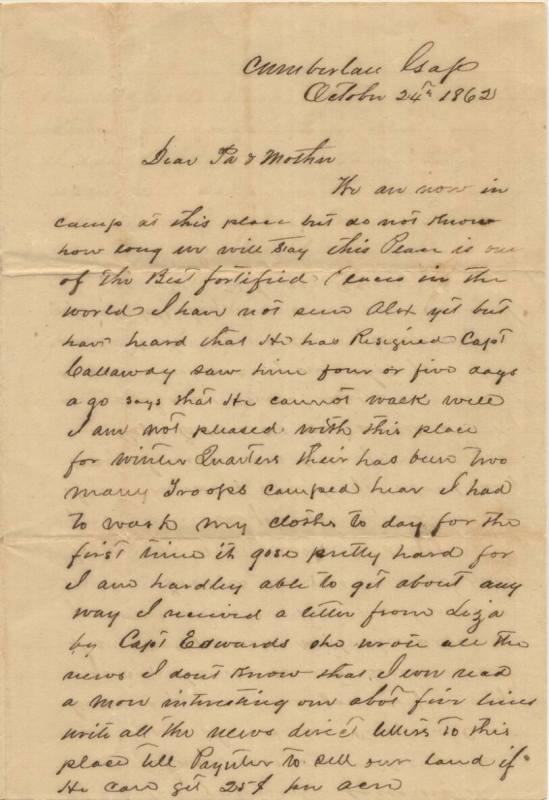 Cumberlan Gap
October 24th 1862
Dear Pa & Mother
We are now in
camp at this place but do not know
how long we will stay this Place is one
of the Best fortified Places in the
world I have not seen Alex yet but
have heard that He has Resigned Capt
Callaway saw him four or five days
ago says that He cannot walk well
I am not pleased with this place
for winter Quarters their has been two
many Troops camped hear I had
to wash my clothes to day for the
first time it gose pretty hard for
I am hardley able to get about any
way I received a letter from Liza
by Capt Edwards she wrote all the
news I dont know that I ever read
a more interesting one abot five lines
write all the news direct letters to this
place tell Paynter to sell our land if
He can get 25$ per acre